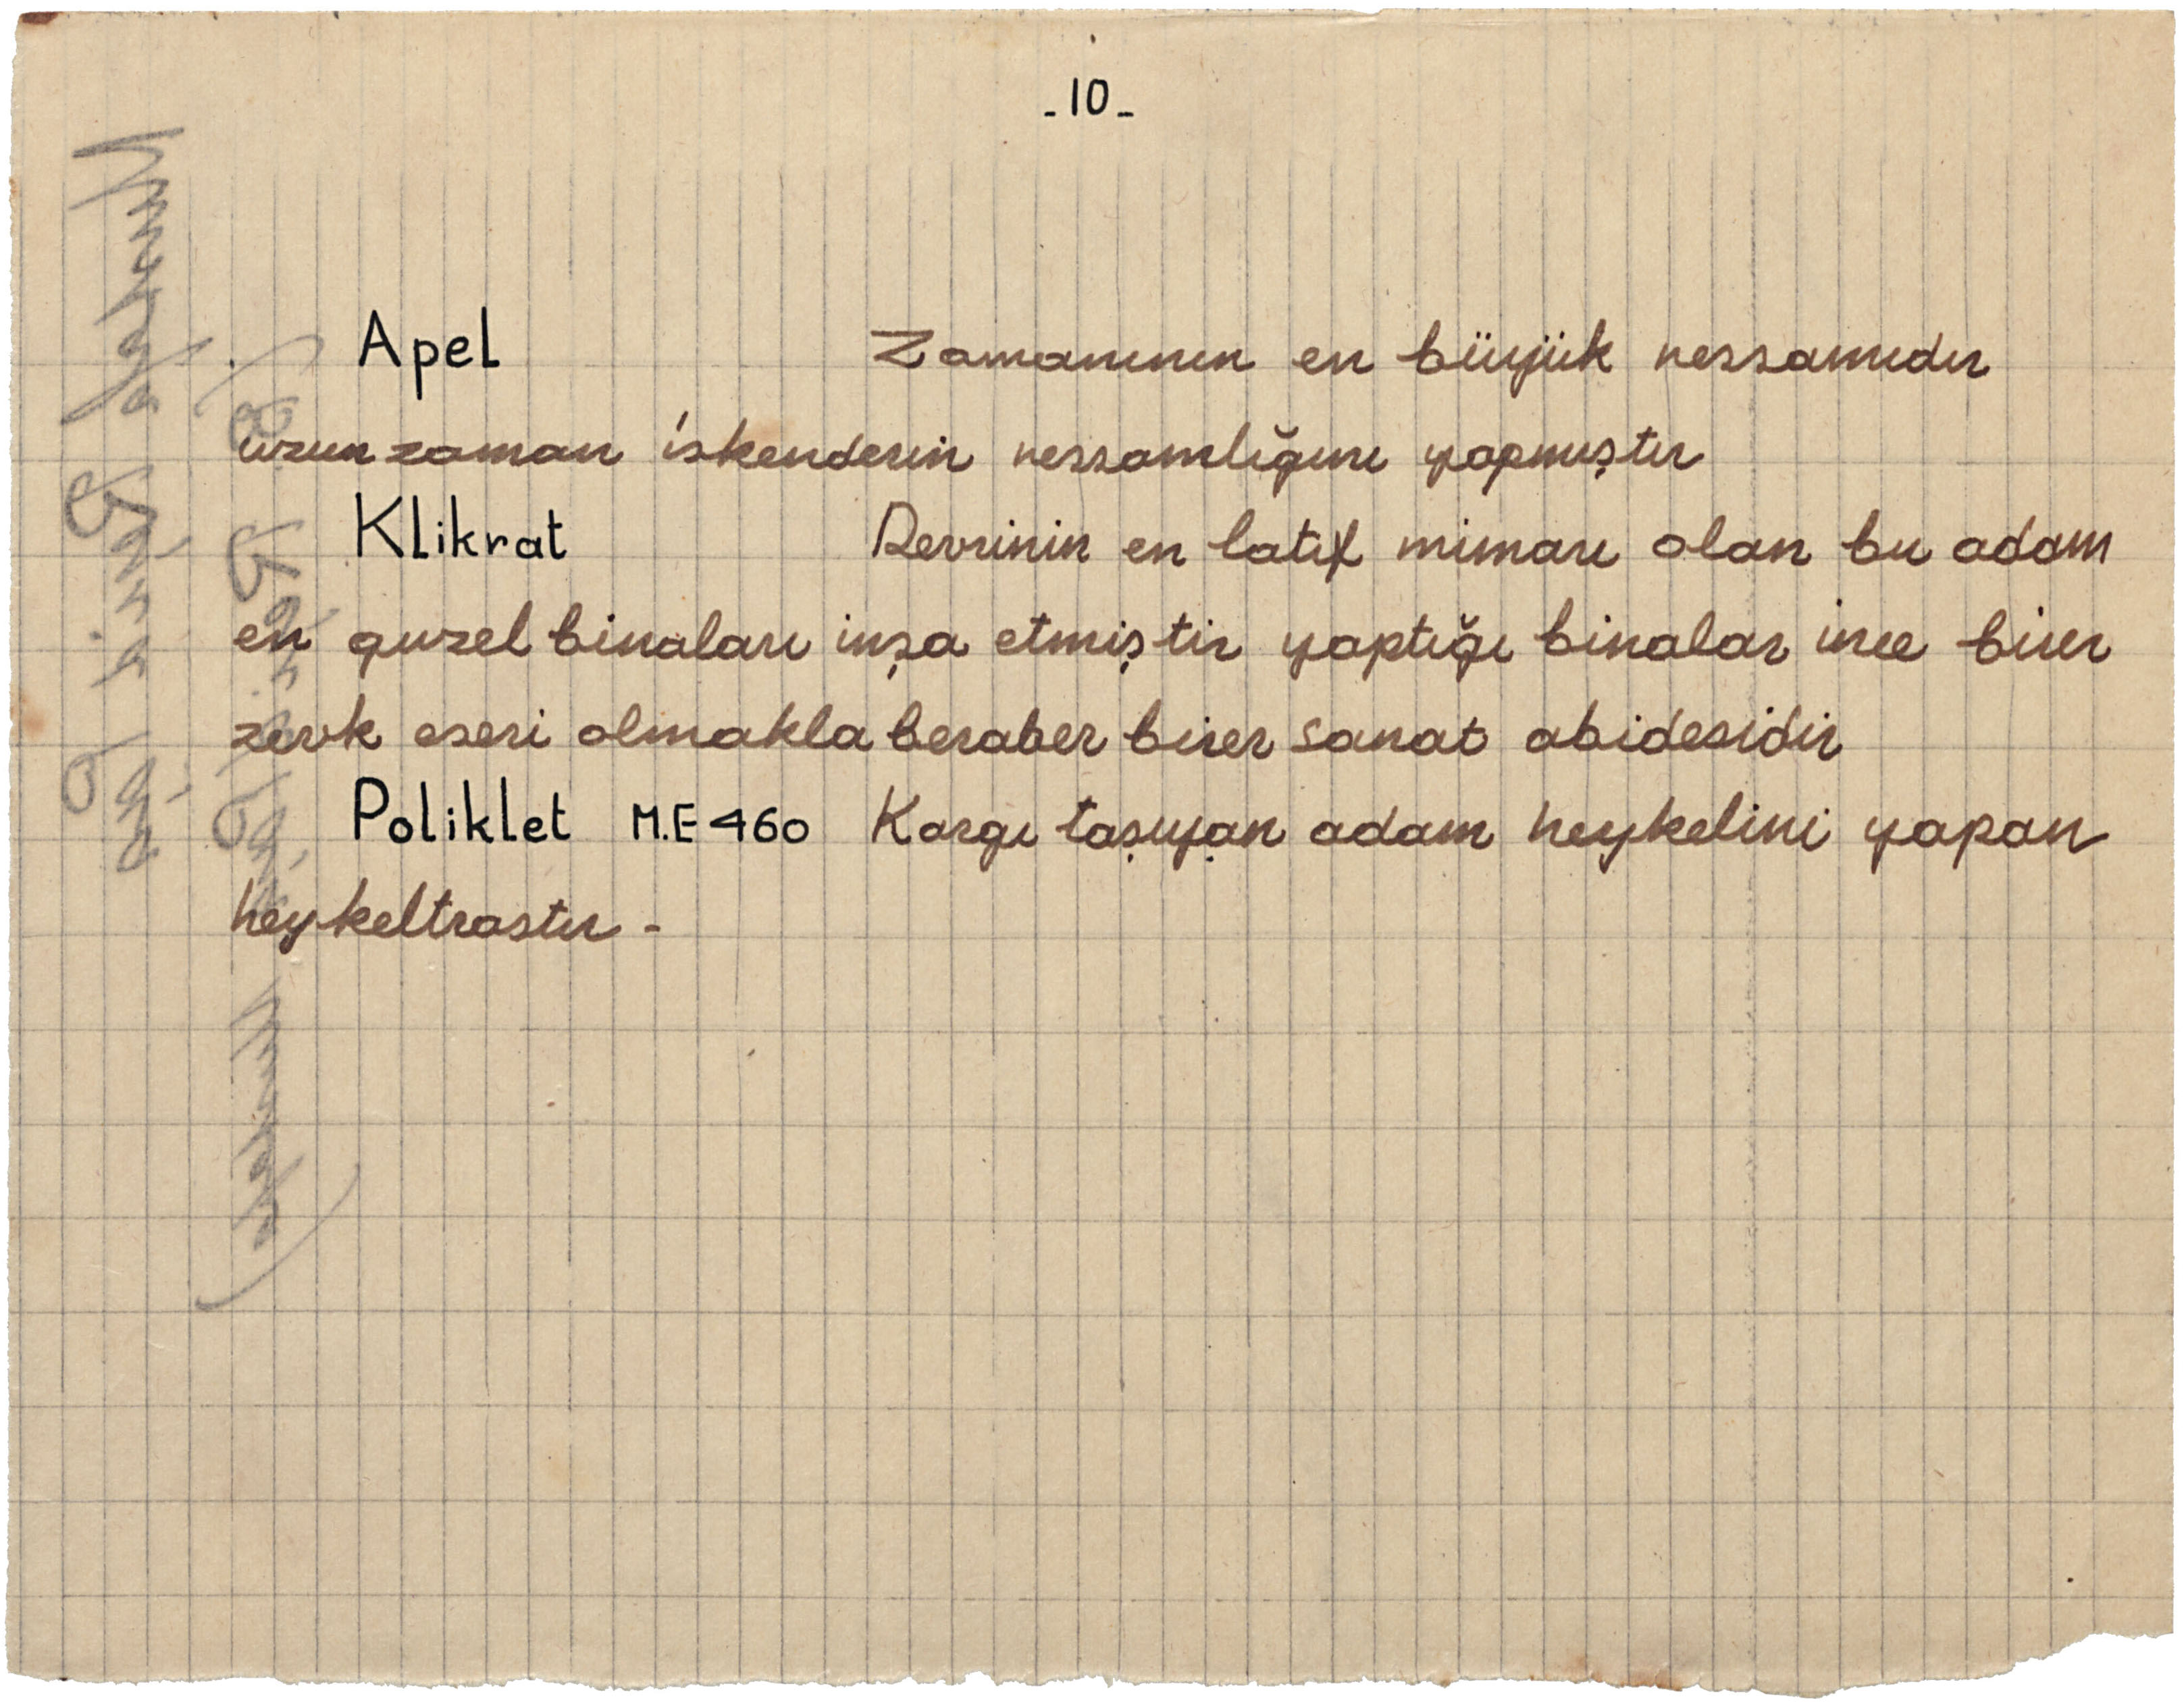 -10-
Apel Zamanının en büyük ressamıdır
uzun zaman iskenderin ressamlığını yapmıştır
Klikrat Devrinin en latif mimarı olan bu adam
en guzel binaları inşa etmiştir yaptığı binalar ince birer
zevk eseri olmakla beraber birer sanat abidesidir
Poliklet M.E 460 Kargı taşıyan adam heykelini yapan
heykeltrastır -